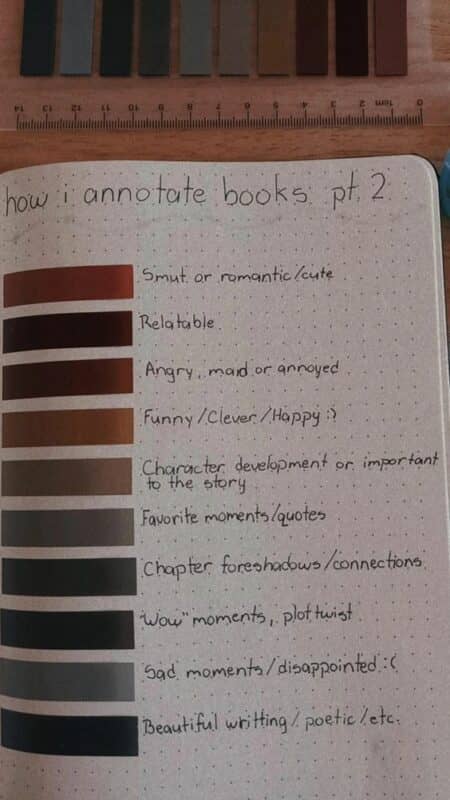 14 13 12 11 10 9 8 7 6 5 4 3 2 1cm 0
how i annotate books pt. 2
Smut or romantic/cute
Relatable
Angry, maid or annoyed
Funny/Clever/Happy :)
Character development or important
to the story
Favorite moments/quotes
Chapter foreshadows/connections
"Wow" moments, plot twist
Sad moments/disappointed :(
Beautiful writting/poetic/etc.